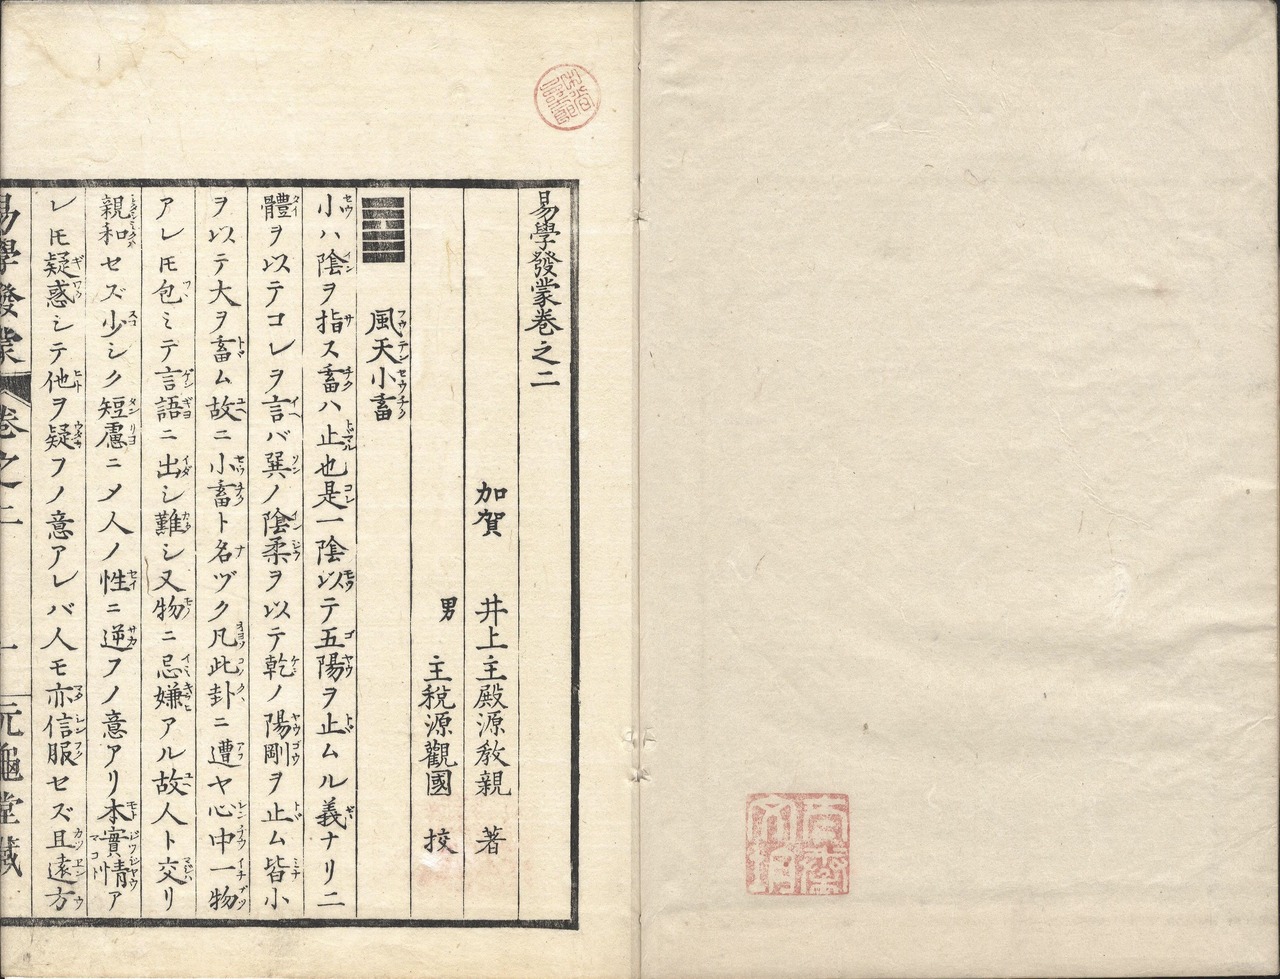 易學發蒙卷之二
加賀 井上主殿源敎親 著
男 主稅源觀國 挍
風天小畜
小ハ陰ヲ指ス畜ハ止也是一陰以テ五陽ヲ止ムル義ナリ二
體ヲ以テコレヲ言バ巽ノ陰柔ヲ以テ乾ノ陽剛ヲ止ム皆小
ヲ以テ大ヲ畜ム故ニ小畜ト名ヅク凡此卦ニ遭ヤ心中一物
アレ𪜈包ミテ言語ニ出シ難シ又物ニ忌嫌アル故人ト交リ
親和セズ少シク短慮ニメ人ノ性ニ逆フノ意アリ本實情ア
レ𪜈疑惑シテ他ヲ疑フノ意アレバ人モ亦信服セズ且遠方
易學發蒙 卷之二 一 元龜堂藏